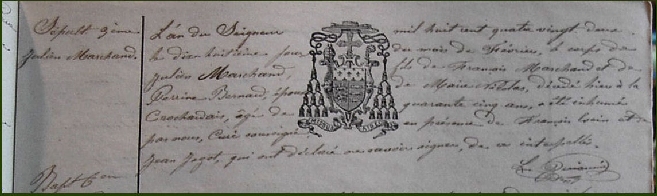 Sépult 3ème
Julien Marchand.
L'an du Seigneur mil huit cent quatre vingt deux
le dix huitième jour du mois de Février, le corps de
Julien Marchand, fils de François Marchand et de
Perrine Bernard, époux de Marie, décédé hier à la
âgé de quarante cinq ans, a été inhumé
par nous, Curé soussigné en présence de François et de
Jean, qui ont déclaré ne savoir signer, de ce interpellés.